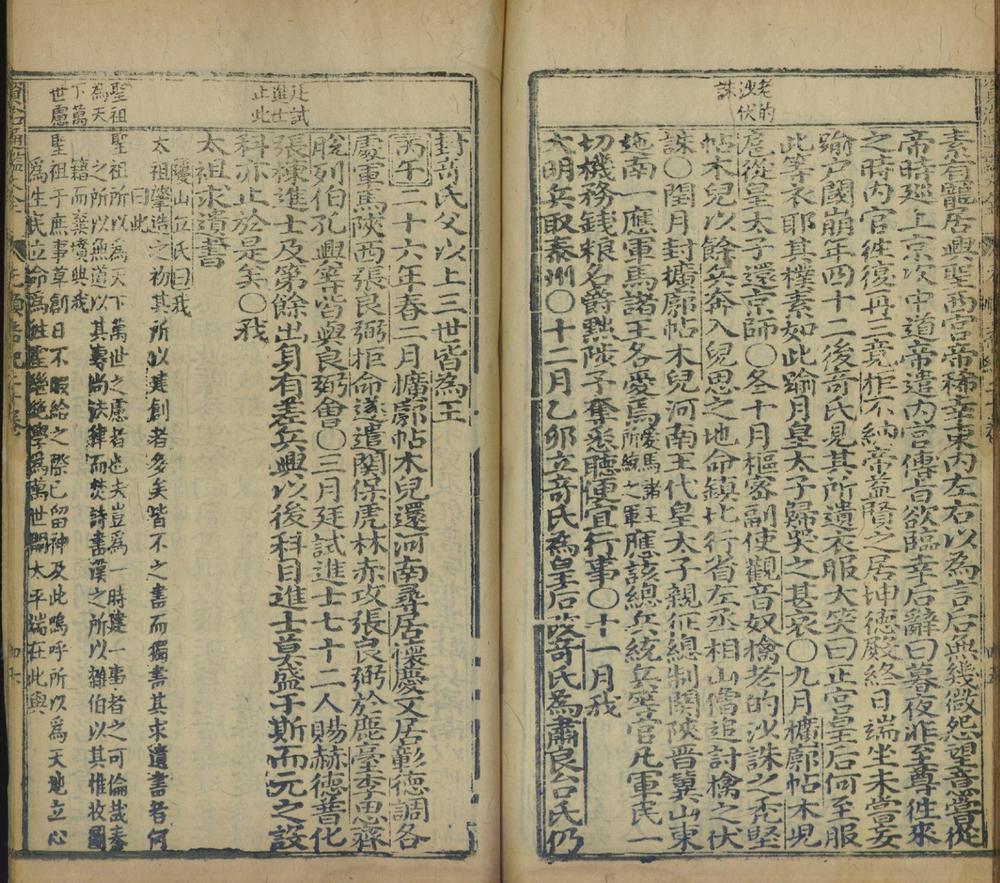 老的
沙伏
誅
素有寵居興聖西宮帝稀幸東內左右以為言后無幾微怨望意嘗從
帝時廵上京次中道帝遣內官傳旨欲臨幸后辭曰暮夜非至尊徃來
之時內官徃復再三竟拒不納帝益賢之居坤德殿終日端坐未嘗妄
踰戶閾崩年四十二後奇氏見其所遺衣服大笑曰正宮皇后何至服
此等衣耶其樸素如此踰月皇太子歸哭之甚哀〇九月擴廓帖木児
扈從皇太子還京師〇冬十月樞密副使觀音奴擒老的沙誅之禿堅
帖木兒以餘兵奔入兒思之地命鎮北行省左丞相山僧追討擒之伏
誅〇閏月封擴廓帖木兒河南王代皇太子親征總制關陝晋冀山東
迤南一應軍馬諸王各愛馬愛馬諸王所統之軍應該總兵統兵等官凡軍民一
切機務錢粮名爵黜陟予奪悉聽便宜行事〇十一月我
大明兵取泰州〇十二月乙卯立奇氏為皇后改奇氏為肅良合氏仍
廷試
進士
止此
封奇氏父以上三世皆為王
丙午二十六年春二月擴廓帖木兒還河南尋居懷慶又居彰德調各
處軍馬陝西張良弼拒命遂遣關保虎林赤攻張良弼於鹿臺李思齊
脫列伯孔興等皆與良弼會〇三月廷試進士七十二人賜赫德普化
張棟進士及第餘出身有差兵興以後科目進士莫盛于斯而元之設
科亦止於是矣〇我
太祖求遺書
瓊山丘氏曰我
太祖肇造之初其所以其創者多矣皆不之書而獨書其求遺書者何
曰此
聖祖所以為天下萬世之慮者也夫豈為一時建一事者之可倫哉秦
之所以無道以其專尚法律而焚詩書漢之所以雜伯以其惟收圖
籍而棄墳典我
聖祖于庶事草創日不暇給之際已留神及此嗚呼所以為天地立心
為生民立命為徃聖繼絕學為萬世開太平端在此與
聖祖
為天
下萬
世慮